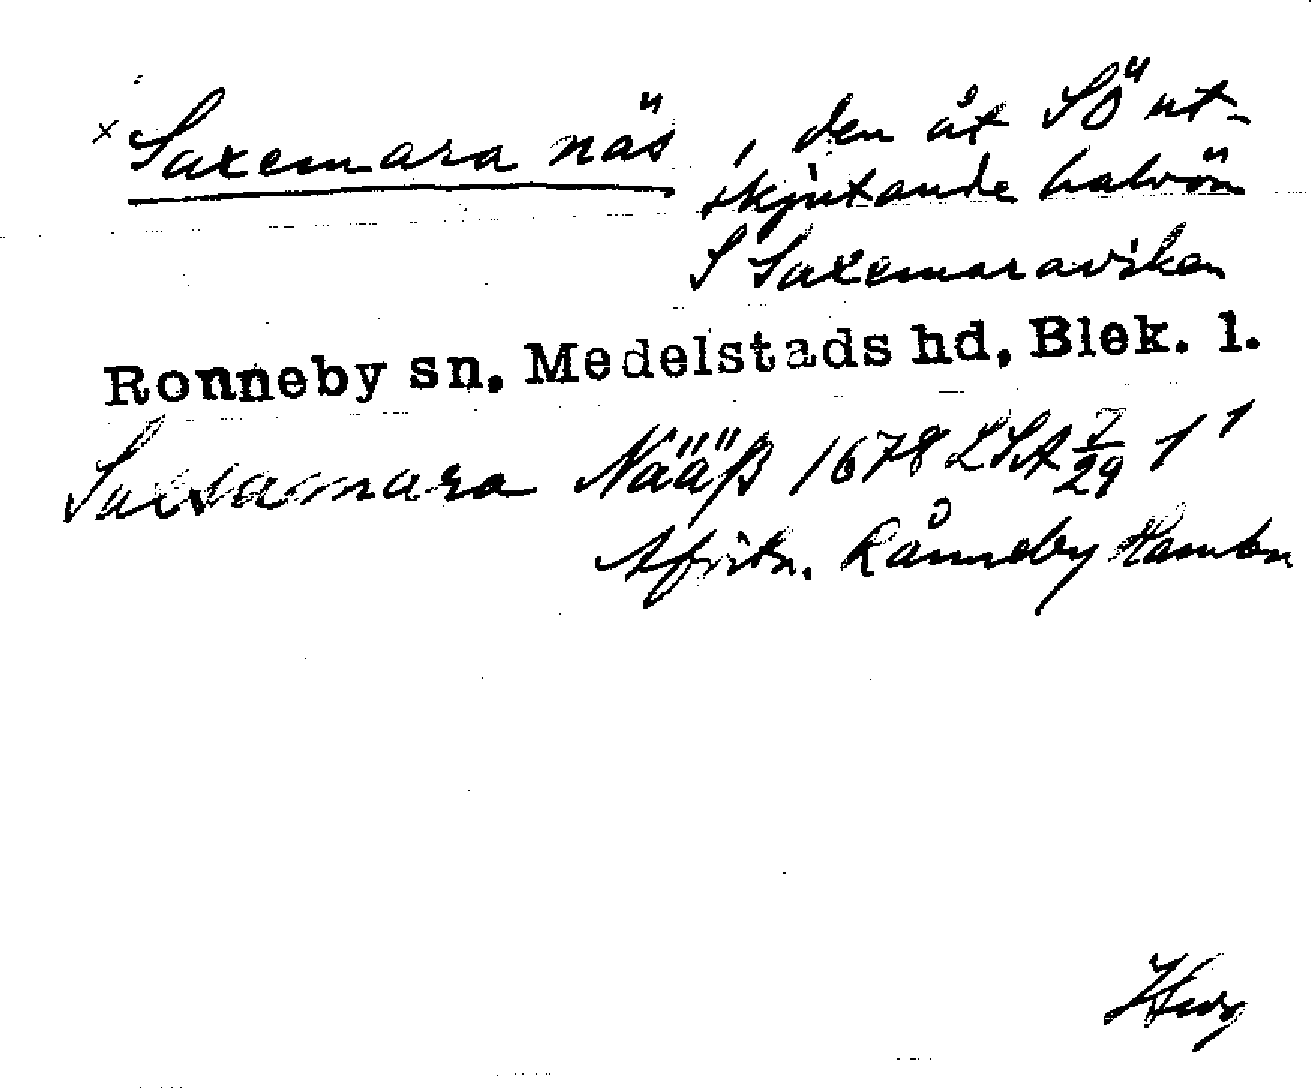 × Saxemara näs, den åt SÖ ut-
skjutande halvön
S Saxemaraviken
Ronneby sn, Medelstads hd, Blek. l.
Saxamara Nääß 1678 LSA 7/29 1¹
Afritn. Rånneby Hambn